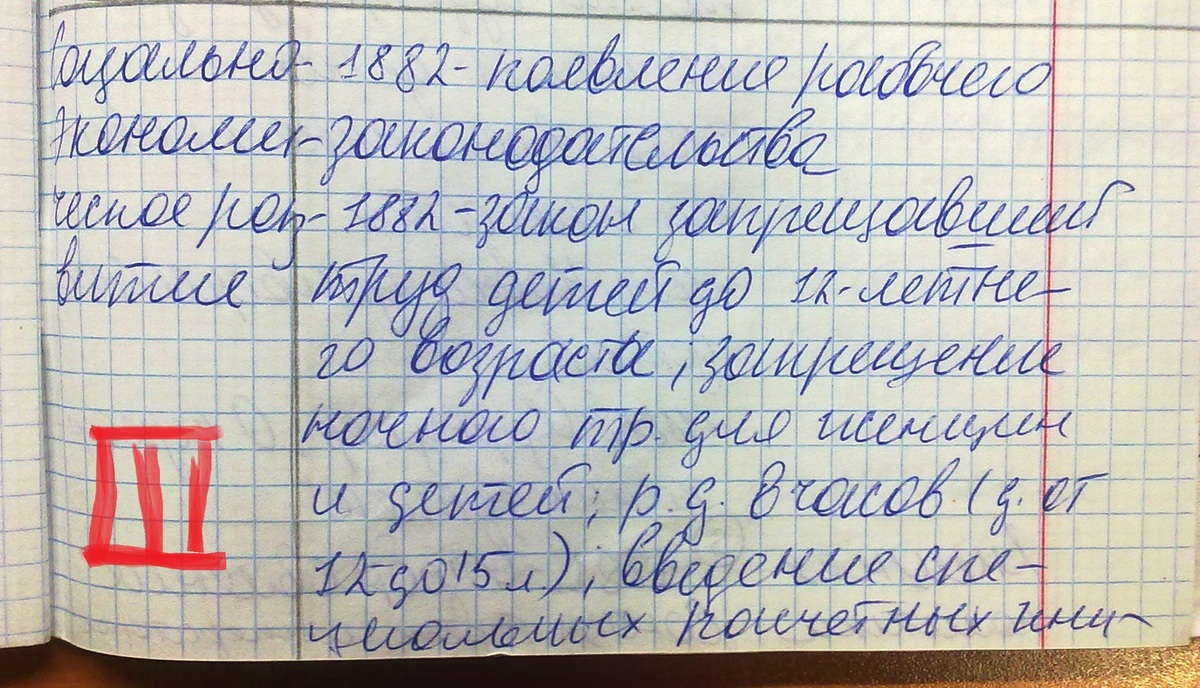 Социально- 1882 - появление рабочего
экономи- законодательства
ческое раз- 1882 - закон запрещавший
витие труд детей до 12-летне-
го возраста; запрещение
ночного тр. для женщин
и детей; р.д. 8 часов (д. от
12 до 15 л); введение спе-
циальных расчетных кни-
III